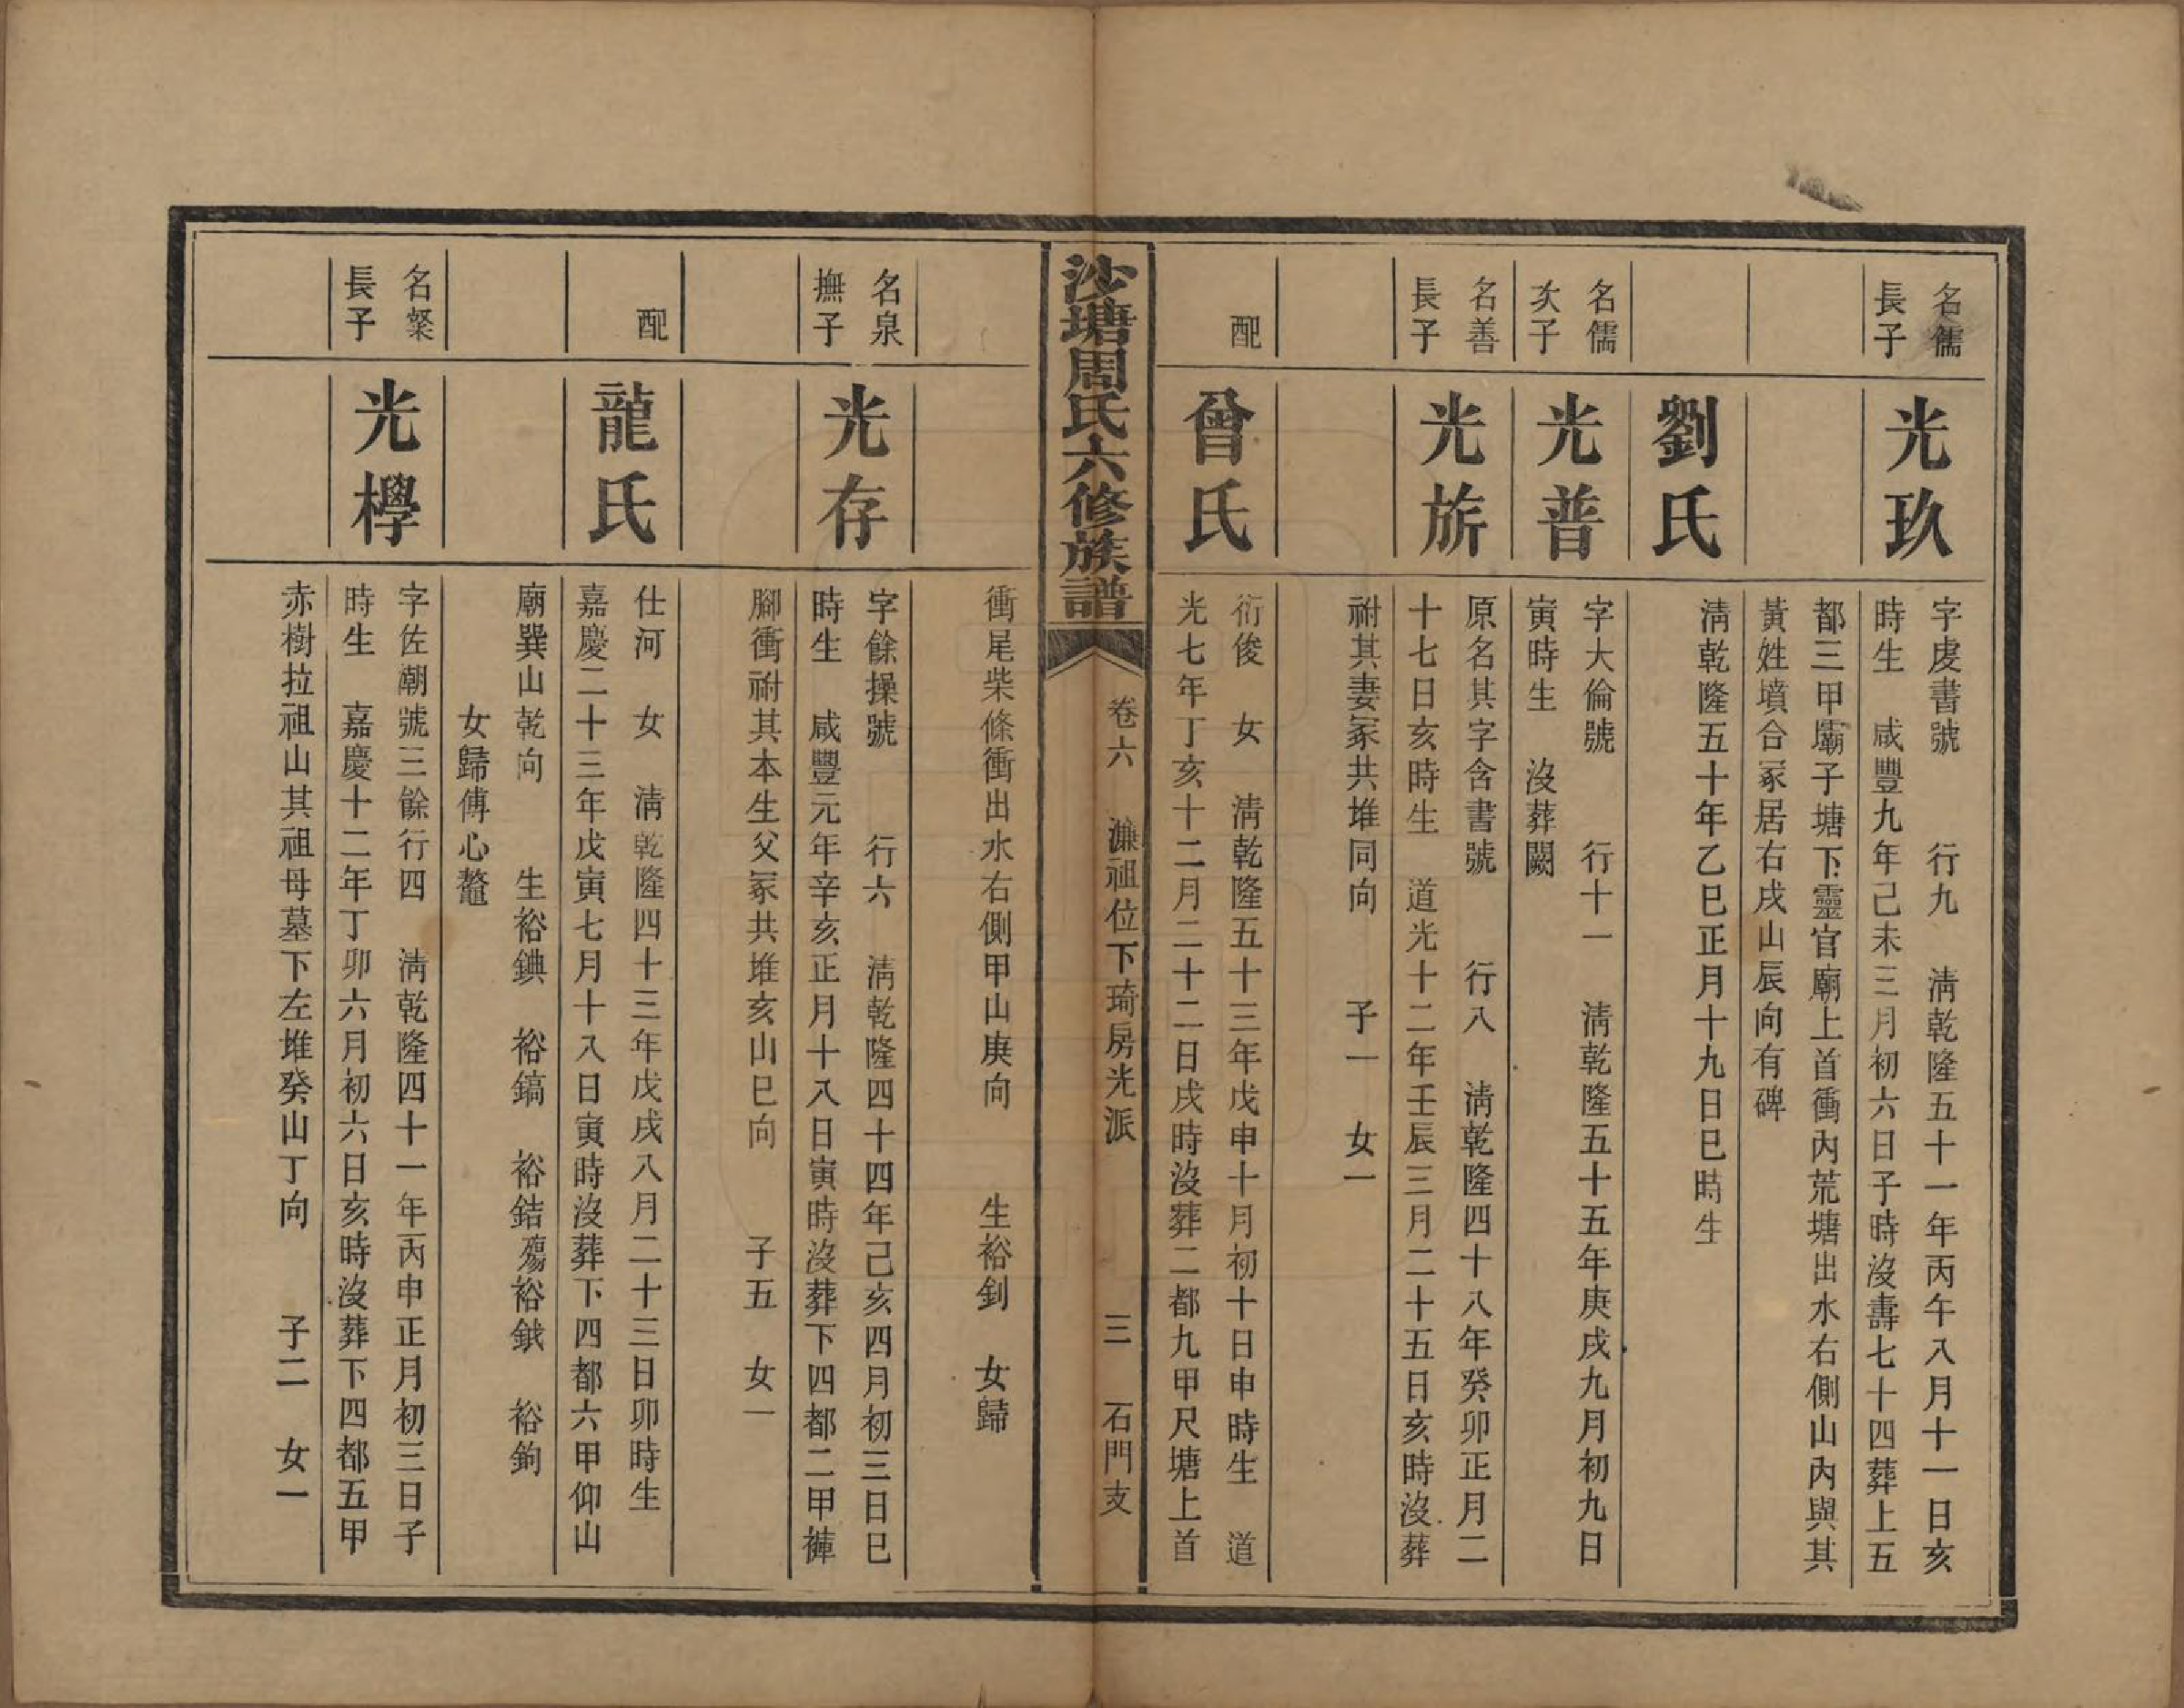 名儒
長子
光玖
字虔書號　　行九　清乾隆五十一年丙午八月十一日亥
時生　咸豐九年己未三月初六日子時沒壽七十四葬上五
都三甲壩子塘下靈官廟上首衝內荒塘出水右側山內與其
黃姓墳合冢居右戌山辰向有碑
劉氏
清乾隆五十年乙巳正月十九日巳時生
名儒
次子
光普
字大倫號　　行十一　清乾隆五十五年庚戌九月初九日
寅時生　沒葬闕
名善
長子
光旂
原名其字含書號　　行八　清乾隆四十八年癸卯正月二
十七日亥時生　道光十二年壬辰三月二十五日亥時沒葬
祔其妻冢共堆同向　　子一　女一
配
曾氏
衍俊　女　清乾隆五十三年戊申十月初十日申時生　道
光七年丁亥十二月二十二日戌時沒葬二都九甲尺塘上首
沙塘周氏六修族譜
卷六　濂祖位下琦房光派　　　三　石門支
衝尾柴條衝出水右側甲山庚向　　生裕釗　女歸
名泉
撫子
光存
字餘操號　　行六　清乾隆四十四年己亥四月初三日巳
時生　咸豐元年辛亥正月十八日寅時沒葬下四都二甲褲
腳衝祔其本生父冢共堆亥山巳向　　子五　女一
配
龍氏
仕河　女　清乾隆四十三年戊戌八月二十三日卯時生
嘉慶二十三年戊寅七月十八日寅時沒葬下四都六甲仰山
廟巽山乾向　　生裕錪　裕鎬　裕銡殤裕鉞　裕鉤
女歸傅心鼇
名粲
長子
光㰒
字佐潮號三餘行四　清乾隆四十一年丙申正月初三日子
時生　嘉慶十二年丁卯六月初六日亥時沒葬下四都五甲
赤樹拉祖山其祖母墓下左堆癸山丁向　　子二　女一